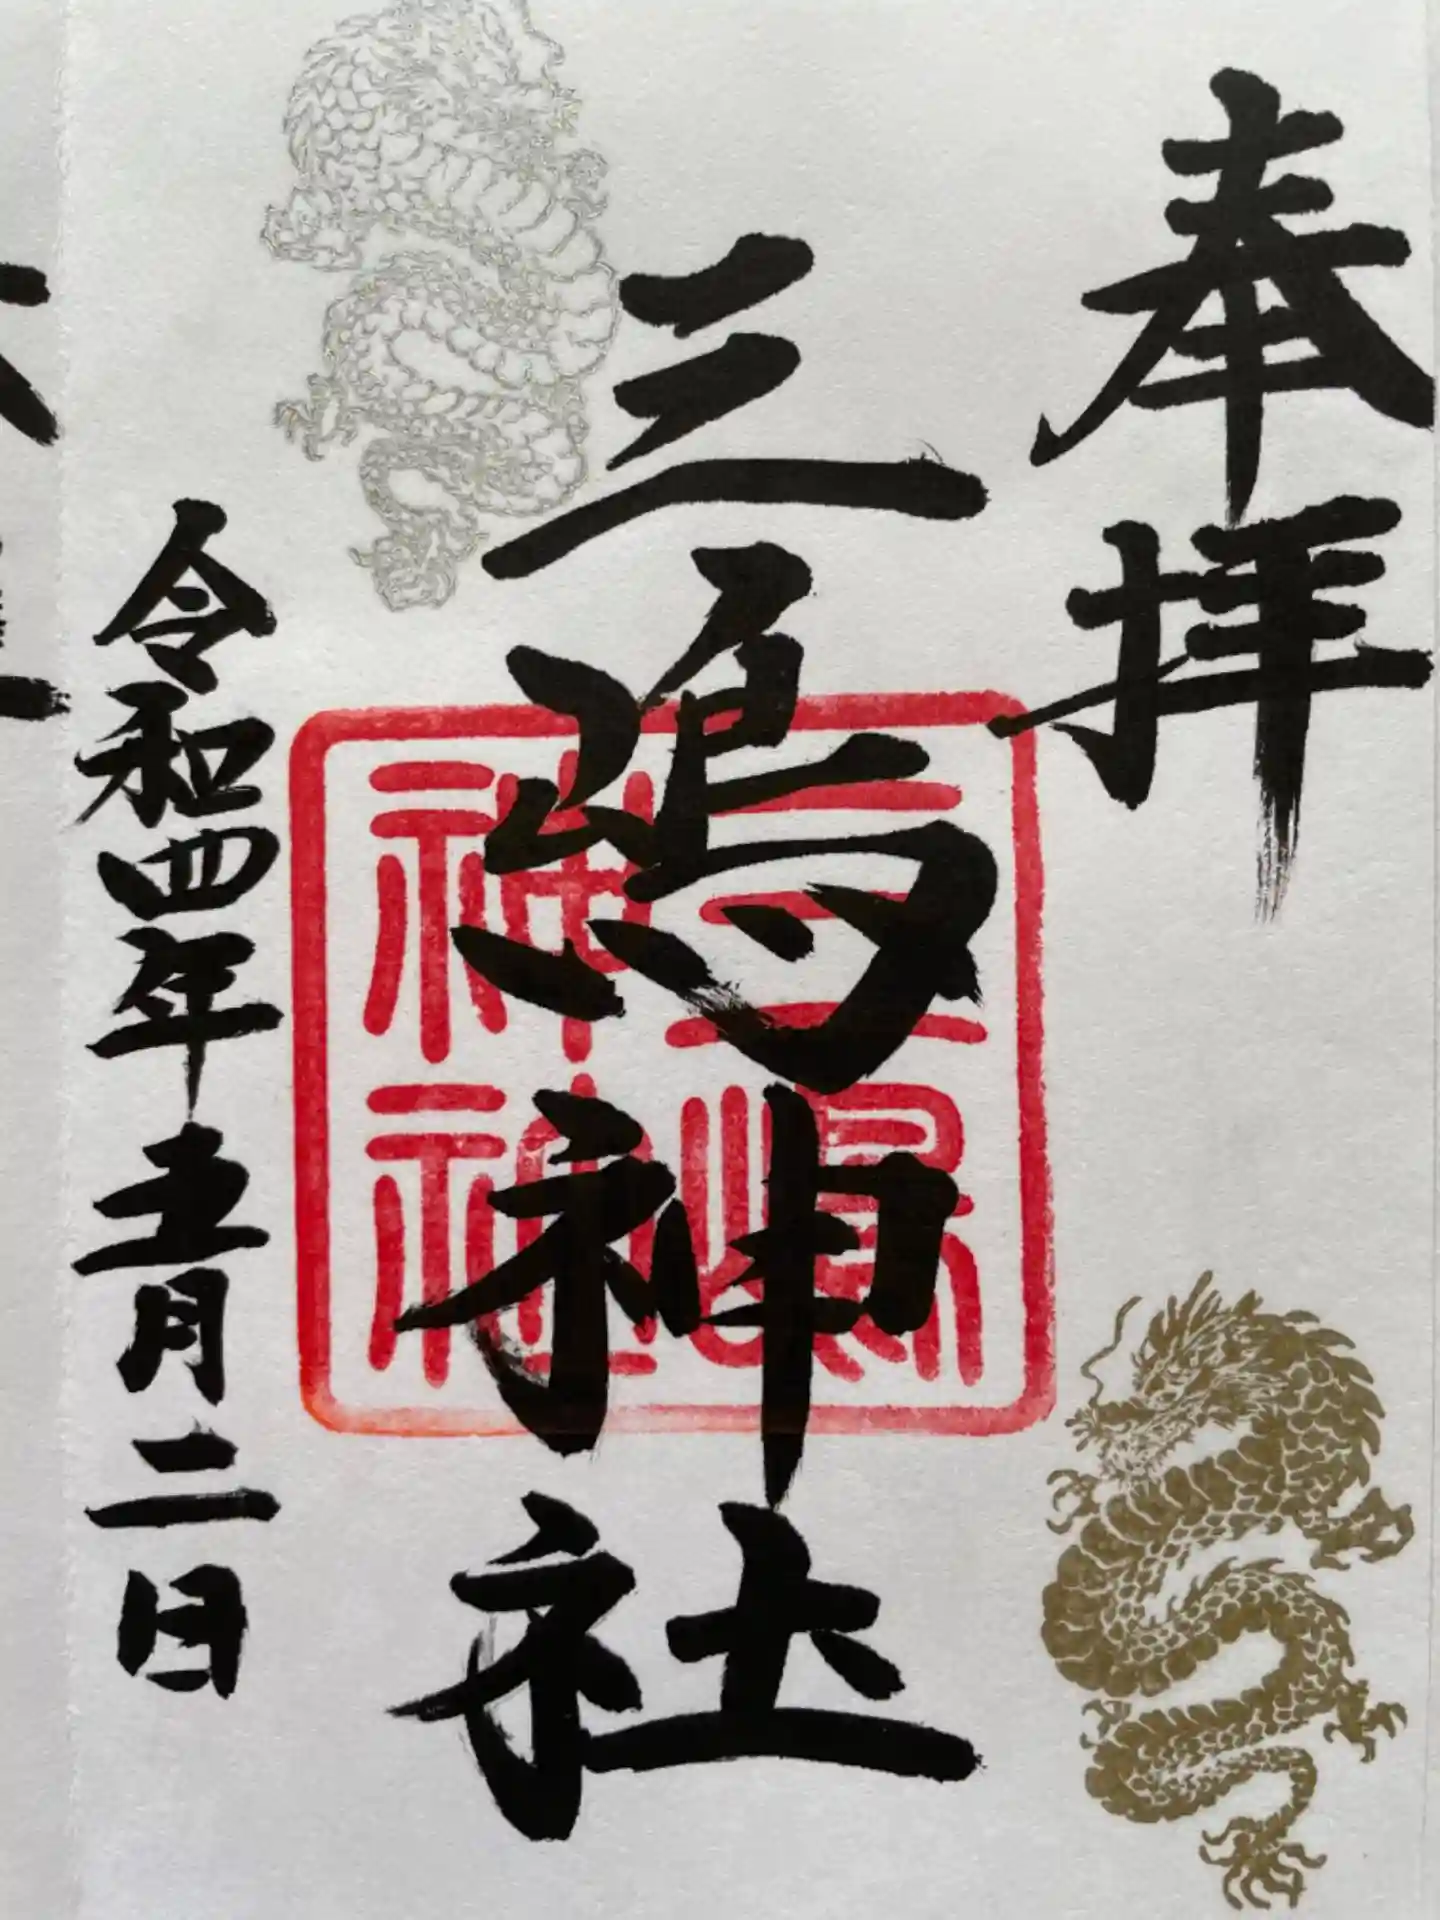 奉拝
三嶋神社
三嶋
神社
令和四年五月二日